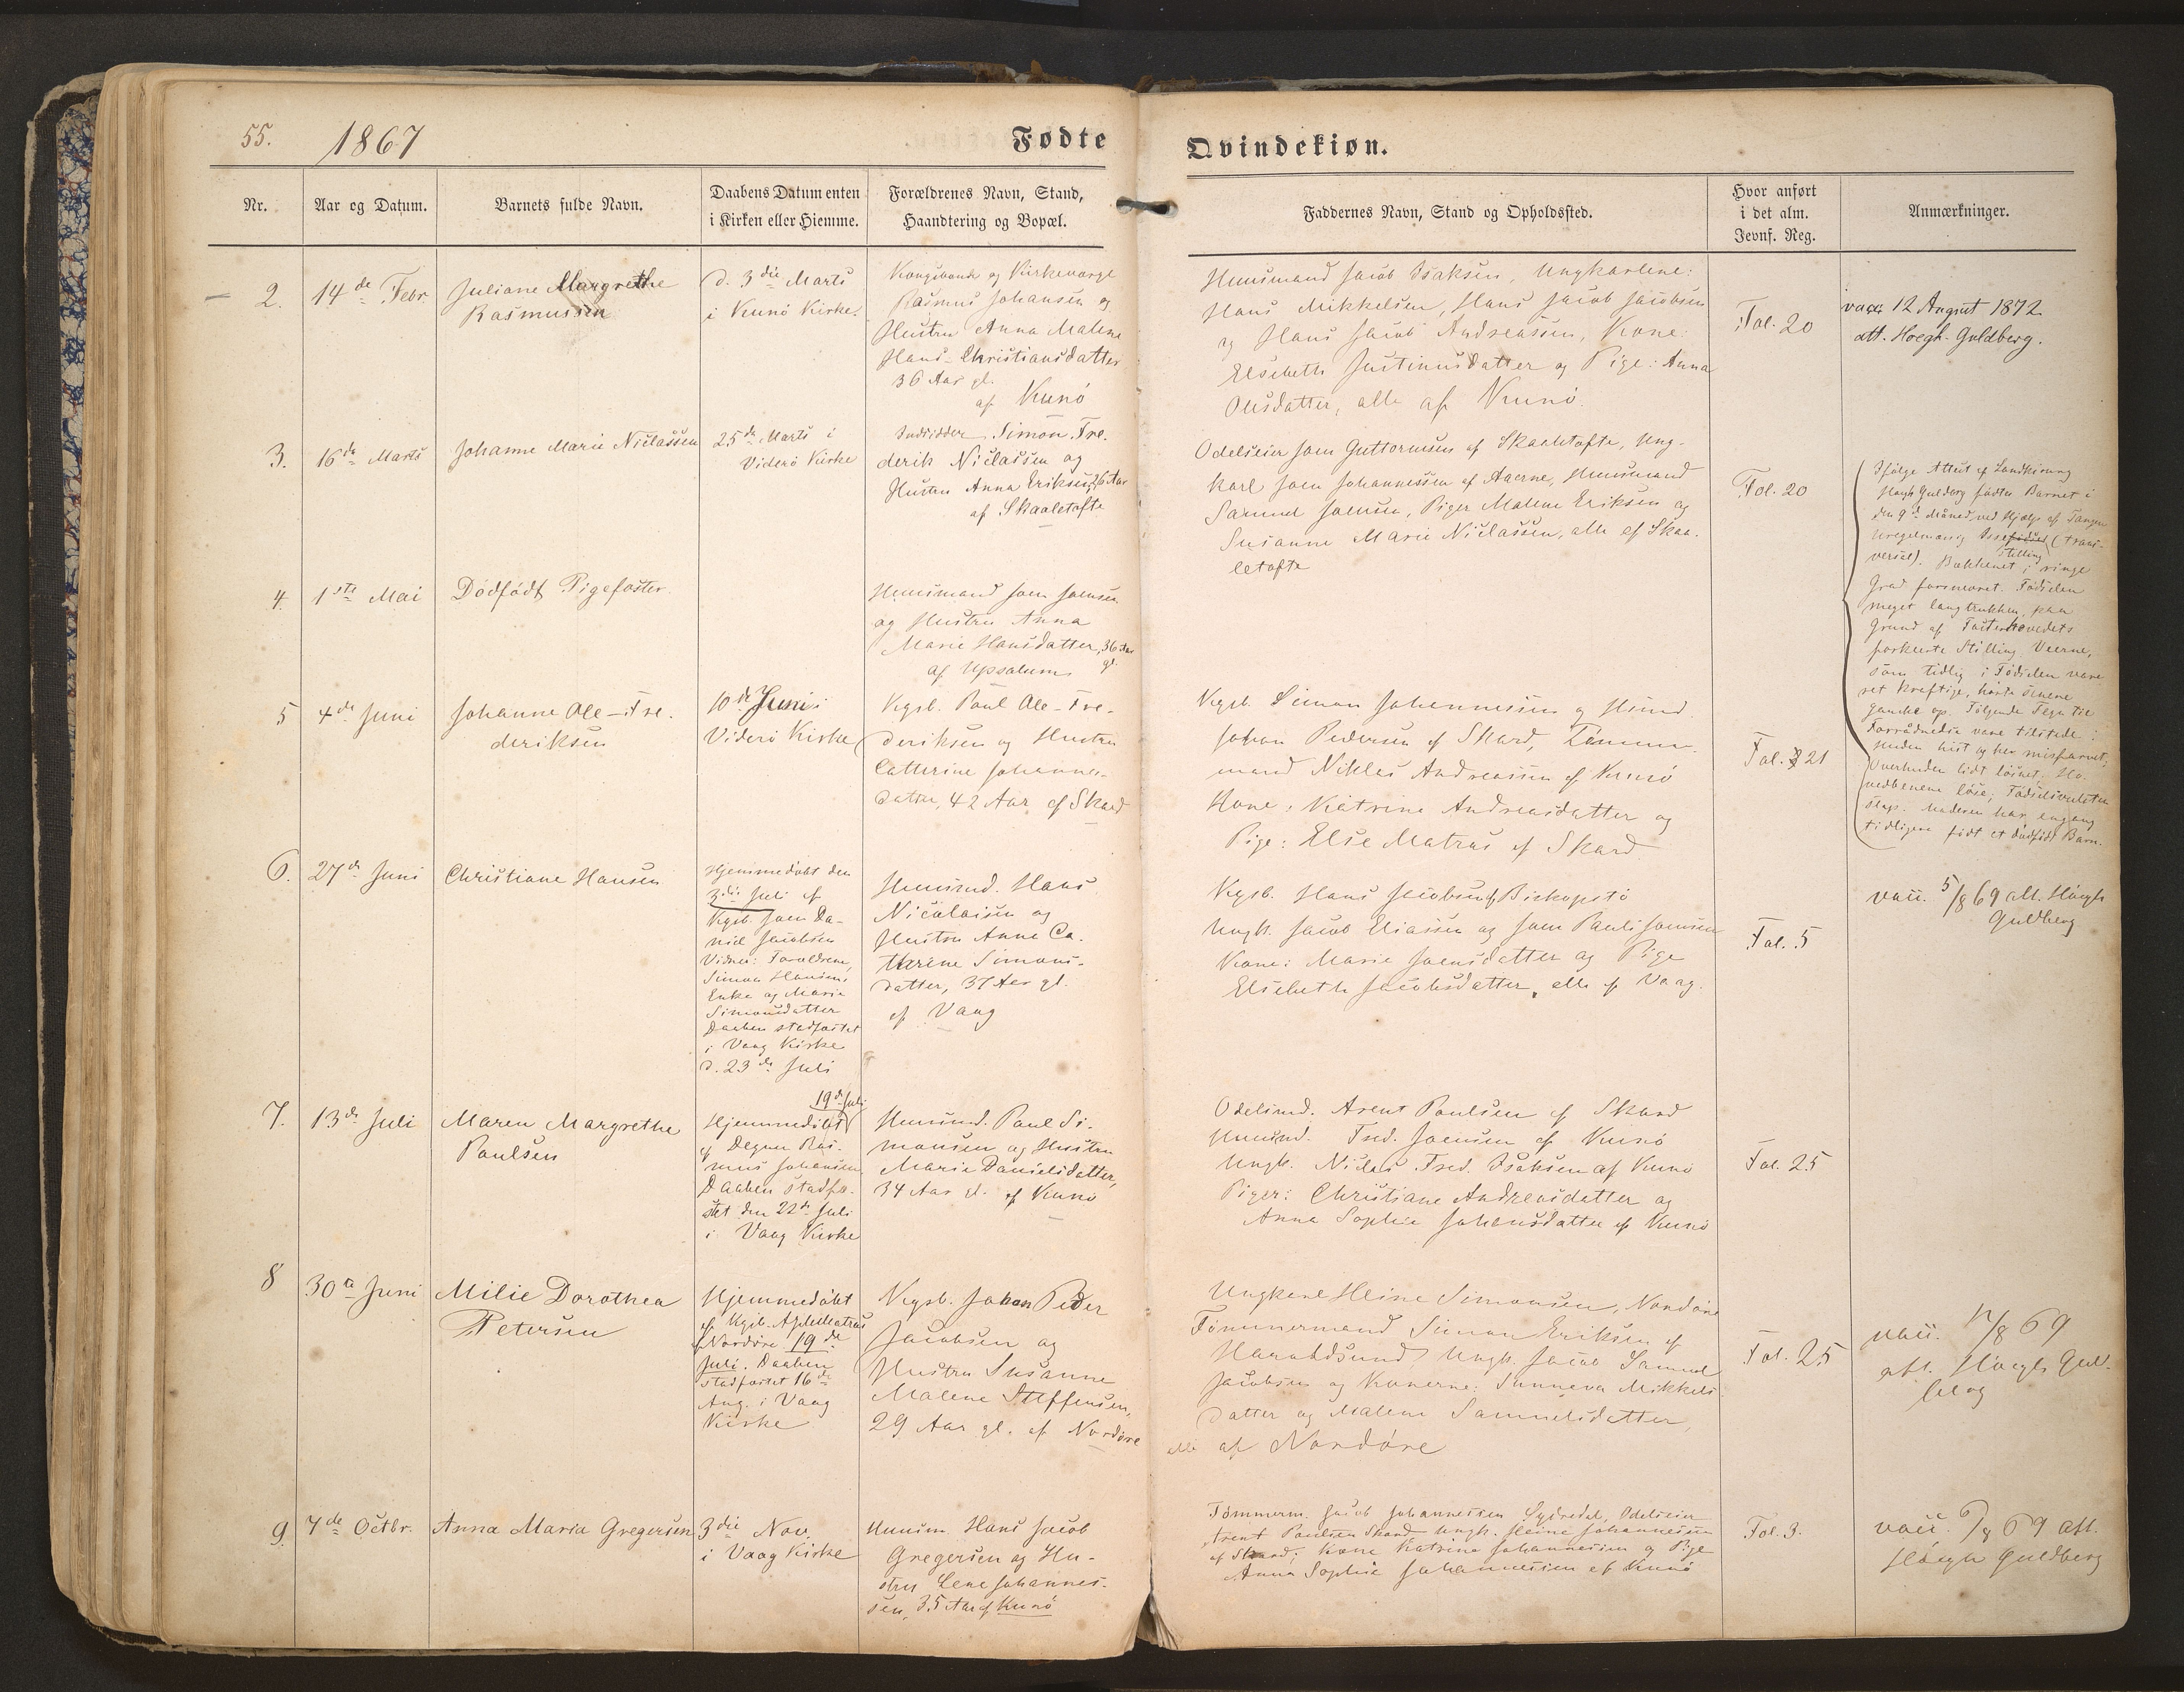 55.
1867
Fødte
Qvindekiøn.
Nr.
Aar og Datum.
Barnets fulde Navn.
Daabens Datum enten
i Kirken eller Hiemme.
Forældrenes Navn, Stand,
Haandtering og Bopæl.
Faddernes Navn, Stand og Opholdssted.
Hvor anført
i det alm.
Jevnf. Reg.
Anmærkninger.
2.
14de Febr.
Juliane Margrethe
Rasmussen
d. 3die Marts
i Kunø Kirke.
Kongsbonde og Kirkeværge
Rasmus Johansen og
Hustru Anna Malene
Hans-Christiansdatter
36 Aar gl.
af Kunø
Huusmand Jacob Isaksen, Ungkarlene:
Hans Mikkelsen, Hans Jacob Jacobsen
og Hans Jacob Andreassen, Kone:
Elsebeth Justinusdatter og Pige: Anna
Olesdatter, alle af Kunø.
Fol. 20
vacc. 12 August 1872
att. Hoegh-Guldberg.
3.
16de Marts
Johanne Marie Niclassen
25de Marts i
Viderø Kirke
Indsidder Simon Fre-
derik Niclassen og
Hustru Anna Eriksen, 26 Aar
af Skaaletofte
Odelseier Joen Guttormsen af Skaaletofte, Ung-
karl Joen Johannessen af Aaerne, Huusmand
Samuel Joensen, Piger Malene Eriksen og
Susanne Marie Niclassen, alle af Skaa-
letofte
Fol. 20
4.
1ste Mai
Dødfødt Pigefoster.
Huusmand Joen Joensen
og Hustru Anna
Marie Hansdatter, 36 Aar
gl.
af Upsalum
Ifølge Attest af Landkirurg
Høgh Guldberg fødtes Barnet i
den 9de Maaned, ved Hjælp af Tangen
Uregelmæssig Issefødsel (trans-
stilling
versal). Bækkenet i ringe
Grad forsnevret. Fødselen
meget langtrukken, paa
Grund af Fosterhovedets
forkeerte Stilling. Veerne,
som tidlig i Fødselen vare
ret kraftige, hørte senere
ganske op. Følgende Tegn til
Forrådnelse vare tilstede:
Huden hist og her misfarvet,
Overhuden lidt løsnet, Ho-
vedbenene løse; Fødselsvulsten
slap. Moderen har engang
tidligere født et dødfødt Barn.
5
4de Juni
Johanne Ole-Fre-
deriksen
10de Juni i
Viderø Kirke
Kgsb. Poul Ole-Fre-
deriksen og Hustru
Catterine Johannes-
datter, 42 Aar af Skard
Kgsb. Simon Johannessen og Huusmd.
Johan Pedersen af Skard, Tømmer-
mand Niklas Andreassen af Kunø
Kone: Katrine Andreasdatter og
Pige: Else Matras af Skard.
Fol. 21
6.
27de Juni
Christiane Hansen
Hjemmedøbt den
3die Juli af
Kgsb. Joen Da-
niel Jacobsen
Vidner: Forældrene,
Simon Hansens
Enke og Marie
Simonsdatter
Daaben stadfæstet
i Vaag Kirke
d. 23de Juli
Huusmd. Hans
Nicolaisen og
Hustru Anne Ca-
thrine Simons-
datter, 37 Aar gl.
af Vaag
Kgsb. Hans Jacobsen af Biskopstø
Ungk. Jacob Eliassen og Joen Pauli Joensen
Kone: Marie Joensdatter og Pige
Elsebeth Jacobsdatter, alle af Vaag.
Fol. 5
vacc. 5/8 69 att. Høegh
Guldberg
7.
13de Juli
Maren Margrethe
Poulsen
19de Juli
Hjemmedøbt
af Degnen Ras-
mus Johansen
Daaben stadfæ-
stet den 22de Juli
i Vaag Kirke
Huusmd. Poul Si-
monsen og Hustru
Marie Danielsdatter,
34 Aar gl. af Kunø
Odelsmd. Arent Poulsen af Skard
Huusmd. Fred. Joensen af Kunø
Ungk. Niclas Fred. Isaksen af Kunø
Piger: Christiane Andreasdatter og
Anna Sophie Johansdatter af Kunø
Fol. 25
8
30te Juni
Milie Dorothea
Petersen
Hjemmedøbt
af Kgsb. Matras
af Nordøre 19de
Juli. Daaben
stadfæstet 16de
Aug. i Vaag
Kirke
Kgsb. Johan Peder
Jacobsen og
Hustru Susanne
Malene Steffensen,
29 Aar gl. af Nordøre
Ungkarl Heine Simonsen, Nordøre
Tømmermand Simon Eriksen af
Haraldsund, Ungk. Jacob Samuel
Jacobsen og Konerne: Sunneva Mikkels-
datter og Malene Samuelsdatter,
alle af Nordøre
Fol. 25
vacc. 17/8 69
att. Høegh Guld-
berg
9.
7de Octbr.
Anna Maria Gregersen
3die Nov.
i Vaag Kirke
Huusm. Hans Jacob
Gregersen og Hu-
stru Lene Johannes-
sen, 35 Aar af Kunø
Tømmerm. Jacob Johannessen Sydredal, Odelseier
Arent Poulsen Skard, Ungk. Heine Johannessen
af Skard; Kone Katrine Johannessen og Pige
Anna Sophie Johannessen af Kunø
Fol. 3.
vacc. 6/8 69 att.
Høegh Guldberg